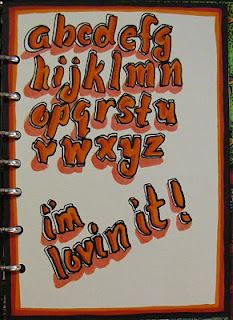 abcdefg
hijklmn
opqrstu
vwxyz
i'm
lovin it!